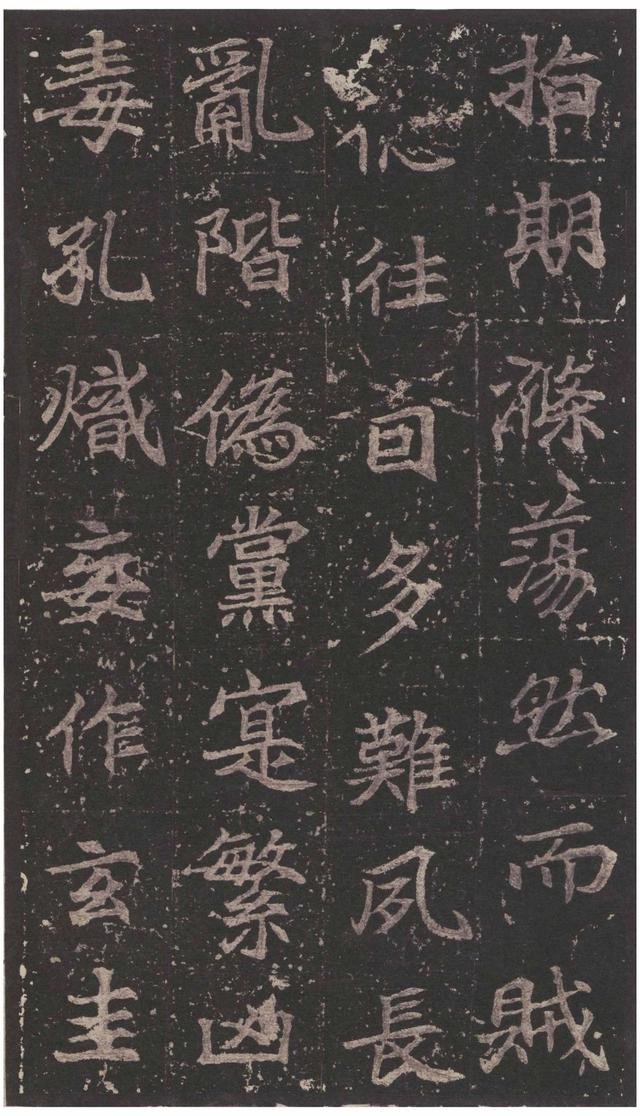 指期滌蕩然而賊
徃囙多難夙長
亂階偽黨寔繁凶
毒孔熾妄作玄圭